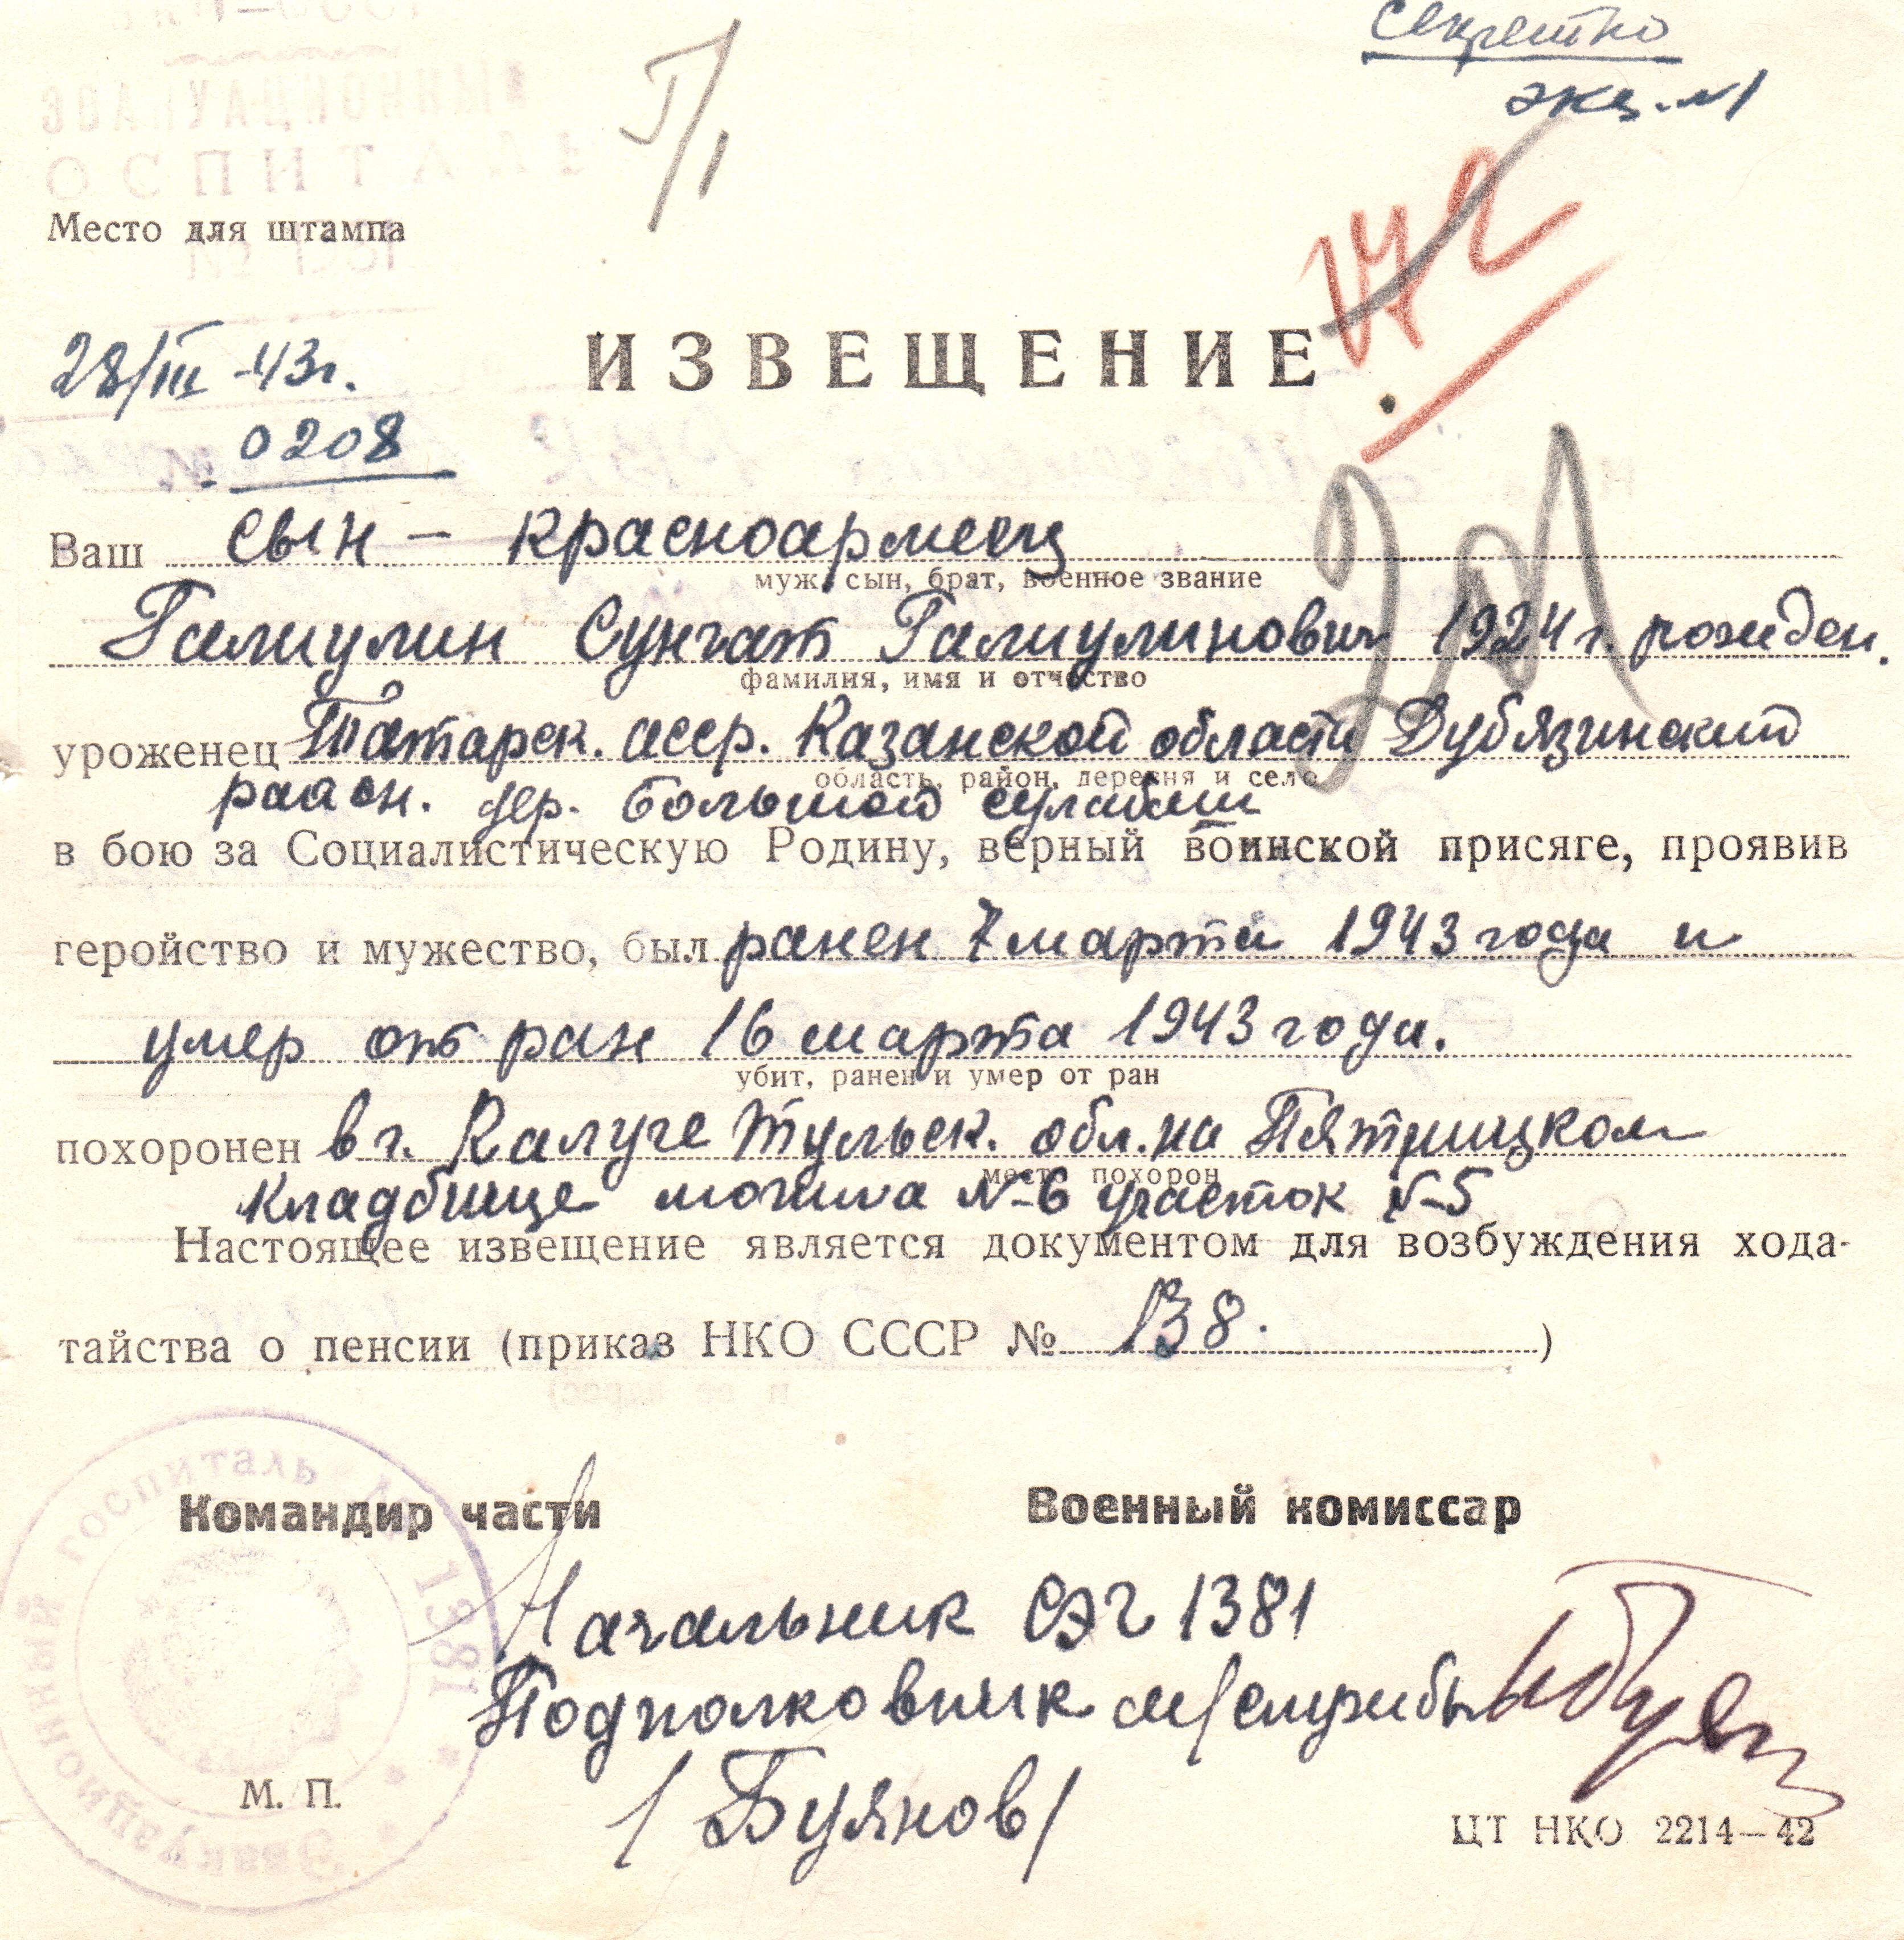 Секретно
экз. №1
ЭВАКУАЦИОННЫЙ
ГОСПИТАЛЬ
Место для штампа
№ 1381
28/III-43г.
0208
ИЗВЕЩЕНИЕ
Ваш сын – красноармеец
муж, сын, брат, военное звание
Галиулин Сунгат Галиулинович 1924 г. рожден.
фамилия, имя и отчество
уроженец Татарск. асср. Казанской области Дубязинский
область, район, деревня и село
рааон. дер. Большой сулабаш
в бою за Социалистическую Родину, верный воинской присяге, проявив
геройство и мужество, был ранен 7 марта 1943 года и
умер от ран 16 марта 1943 года.
убит, ранен и умер от ран
похоронен в г. Калуге Тульск. обл. на Пятницком
место похорон
кладбище могила №6 участок №5
Настоящее извещение является документом для возбуждения хода-
тайства о пенсии (приказ НКО СССР № 138.)
Командир части Военный комиссар
Начальник СЭГ 1381
Подполковник м/службы
/Буянов/
М. П.
Эвакуационный госпиталь № 1381
ЦТ НКО 2214—42